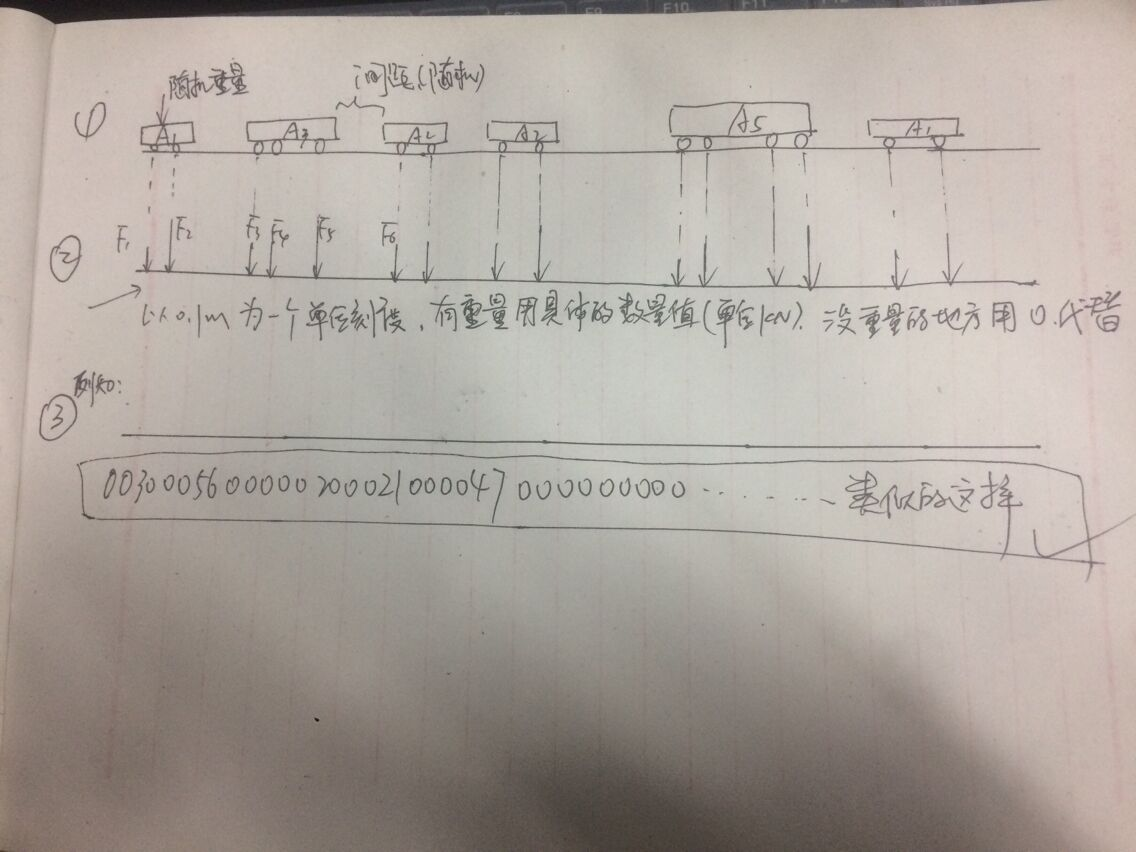 F9 F10
随机重量 间距(随机)
①
A1 A3 A2 A2 A5 A1
F1 F2 F3 F4 F5 F6
②
以0.1m为一个单位刻度,有重量用具体的数量值(单位KN).没重量的地方用0.代替
例如:
③
00300056000002000021000047 000000000........类似的这样